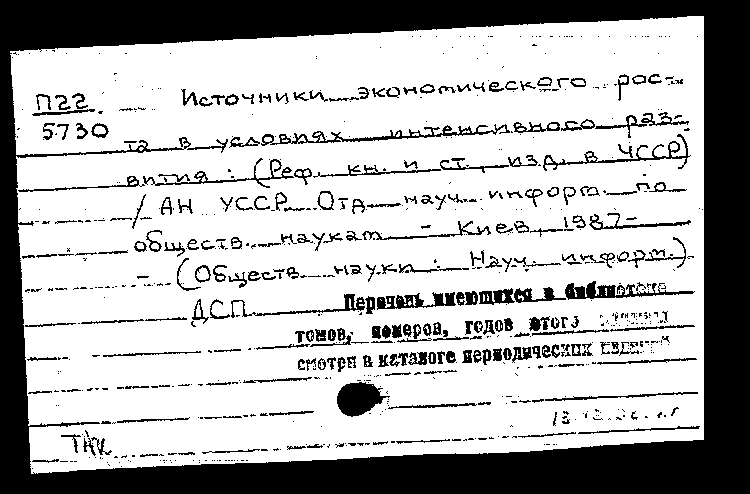 П22
5730
Источники экономического рос-
та в условиях интенсивного раз-
вития : (Реф. кн. и ст., изд. в ЧССР)
/ АН УССР. Отд. науч. информ. по
обществ. наукам. - Киев, 1987-
- (Обществ. науки : Науч. информ.).
ДСП
Перечень имеющихся в библиотеке
томов, номеров, годов этого издания
смотри в каталоге периодических изданий